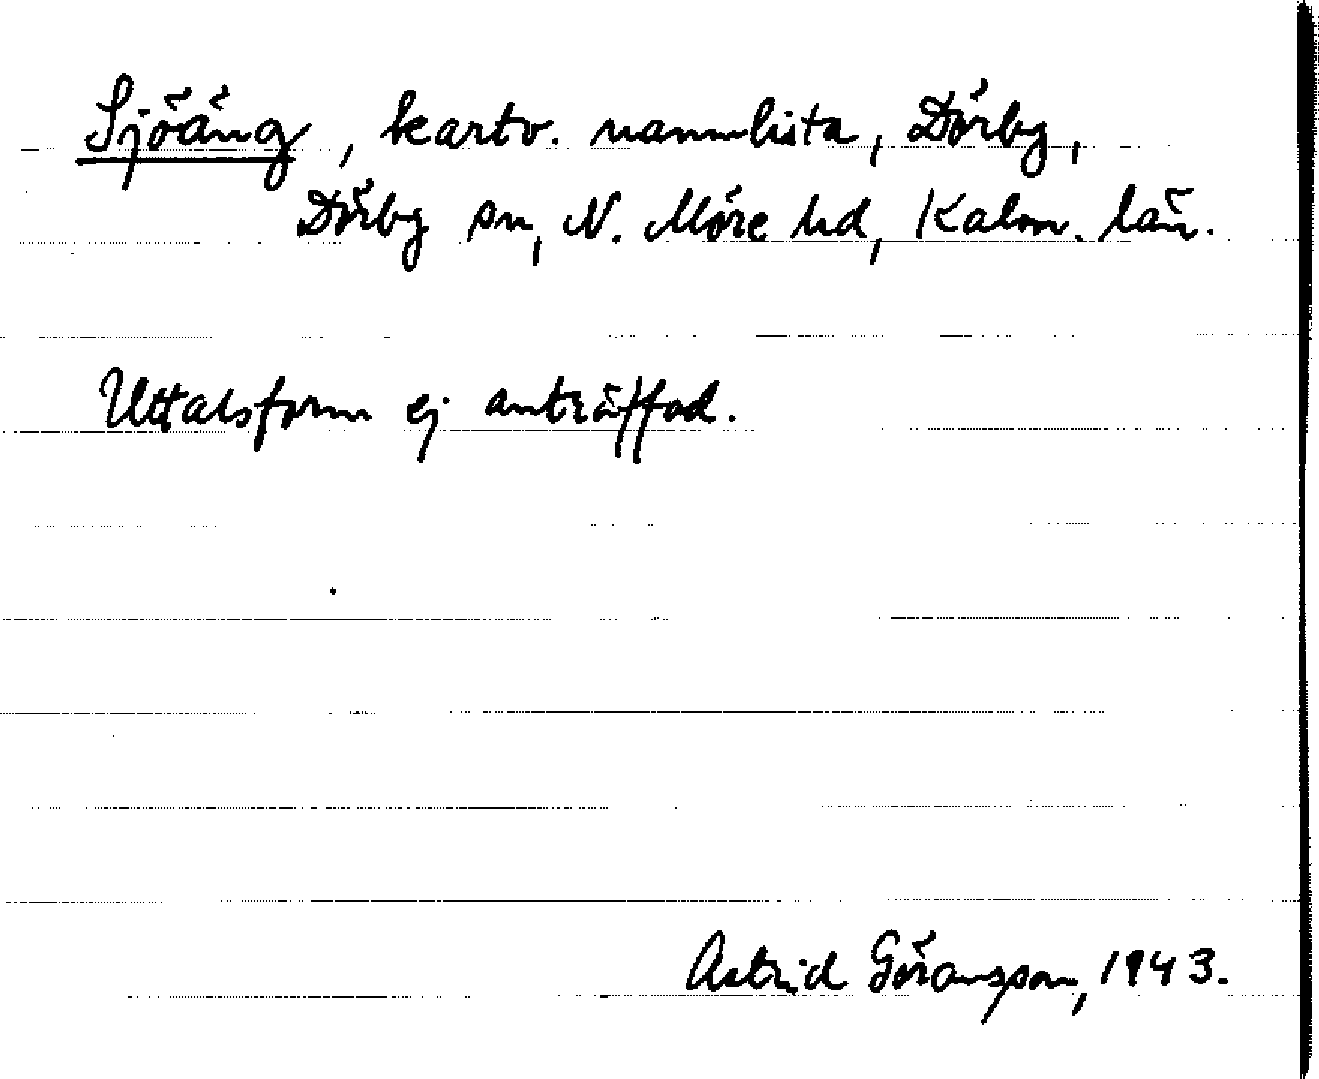 Sjöäng, kartv. namnlista, Dörby,
Dörby sn, N. Möre hd, Kalm. län.
Uttalsform ej anträffad.
Astrid Göransson, 1943.